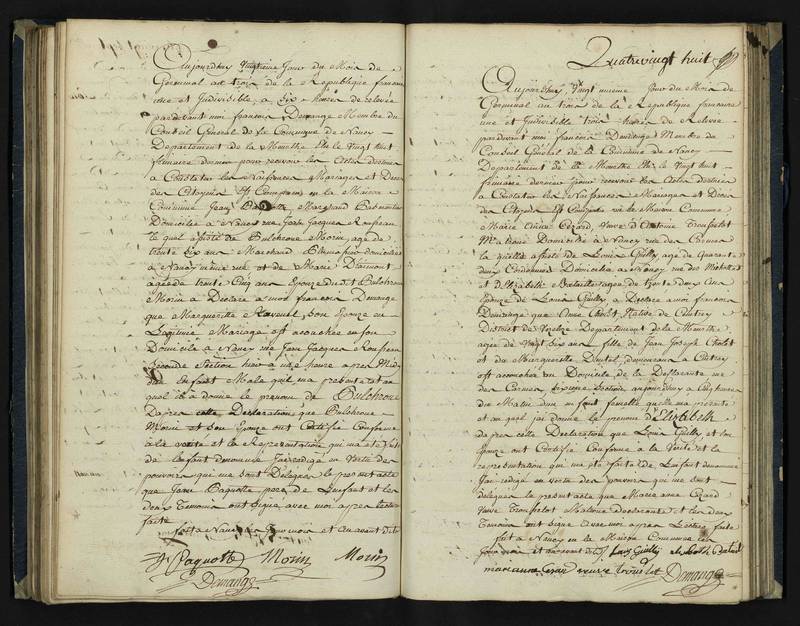 Aujourdhuy Vingtieme jour du Mois de
Germinal an trois de la Republique francoise
une et Indivisible, a Six heures de relevée
pardevant moi francois Demange Membre du
Conseil Général de la Commune de Nancy
Departement de la Meurthe Elu le vingt huit
frimaire dernier pour recevoir les Actes destinés
a Constater les Naissances Mariages et Decès
des Citoyens Est Comparu en la Maison
Commune Jean Paquotte Marchand
Domicilié a Nancy rue Jean Jacques Rousseau
le quel assisté de Pulchrone Morin, agé de
trente Six ans Marchand domicilié
a Nancy même rue et de Marie
agée de trente Cinq ans Epouze dudit Pulchrone
Morin a Declaré a moi francois Demange
que Marguerite Ravenel, Son Epouze en
Legitime Mariage est accouchée en Son
Domicile a Nancy rue Jean Jacques Rousseau
Seconde Section hier a une heure apres Midy
d'un Enfant Male qu'il m'a presenté et au
quel il a donné le prenom de Pulchrone
Dapres cette Declaration que Pulchrone
Morin et Son Epouze ont Certifié Conforme
a la verité et la Representation qui m'a été fait
de l'enfant denommé J'ai redigé en Vertu des
pouvoirs qui me sont Delegués le present acte
que Jean Paquotte pere de l'enfant et les
deux Temoins ont Signé avec moi apres lecture
faite
fait a Nancy les jour mois et an avant dits
J Paquotte Morin Morin
Demange
Quatrevingt huit
Aujourdhuy Vingt unieme jour du Mois de
Germinal an trois de la Republique francaise
une et Indivisible trois heures de Relevée
pardevant moi francois Demange Membre du
Conseil Général de la Commune de Nancy
Departement de la Meurthe Elu le Vingt huit
frimaire dernier pour recevoir les Actes destinés
a Constater les Naissances Mariages et Décès
des Citoyens Est Comparu en la Maison Commune
Marie Anne Cézard Veuve d'Antoine troupelot
Matrone Domiciliée a Nancy rue des Carmes
la quelle assistée de Louis Guilly agé de Quarante
deux Domicilié a Nancy rue des
et d'Elizabeth agée de trente deux ans
Epouze de Louis Guilly, a Declaré a moi francois
Demange que Anne Cholet Native de Autrey
District de Vezelize Departement de la Meurthe
agée de Vingt Six ans fille de Jean Joseph Cholet
et de Marguerite demeurans a Autrey
est accouchée en Domicile de la Declarante rue
des Carmes Section, aujourdhuy a Cinq heures
du Matin d'un enfant femelle quelle ma presenté
et au quel j'ai donné le prenom d'Elizabeth
dapres cette Declaration que Louis Guilly et son
Epouze ont Certifié Conforme a la Verité et la
representation qui ma été faite de l'Enfant denommé
J'ai redigé en vertu des pouvoirs qui me sont
delegués le present acte que Marie Anne Cezard
Veuve troupelot Matrone declarante et les deux
Temoins ont signé avec moi apres Lecture faite
fait a Nancy en la Maison Commune les
jour mois et an avant dits Louis Guilly
marianne veuve troupelot Demange